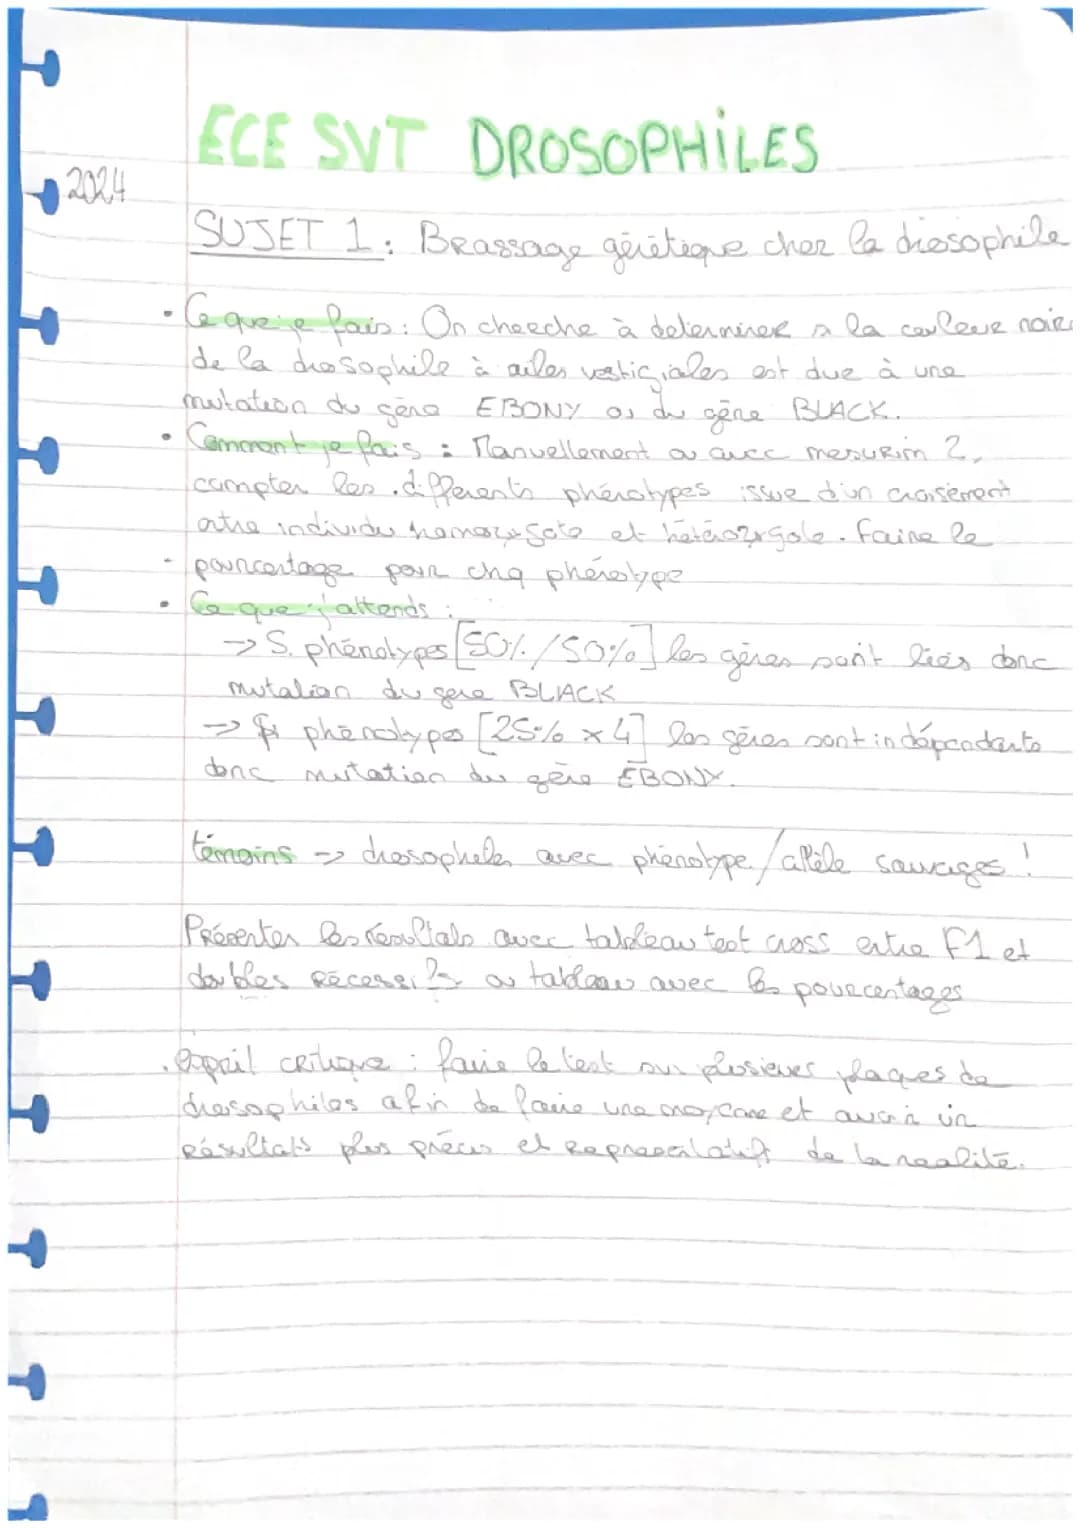 ECE SVT DROSOPHiLES
2024
SUJET 1 : Brassage génétique chez la drosophile
• Ce que je fais : On cherche à determiner si la couleur noire
de la drosophile à ailes vestigiales est due à une
mutation du gène EBONY ou du gène BLACK.
• Comment je fais : Manuellement ou avec mesurim 2,
compter les différents phénotypes issue d'un croisement
entre individu homozygote et hétérozygote. Faire le
- pourcentage pour chq phénotype
• Ce que j'attends :
→ Si phénotypes [50% / 50%] les gènes sont liés donc
mutation du gene BLACK
→ Si phénotypes [25% x 4] les gènes sont indépendants
donc mutation du gène EBONY.
témoins → drosophiles avec phénotype / allèle sauvages !
Présenter les résultats avec tableau test cross entre F1 et
doubles récessifs ou tableau avec les pourcentages
• esprit critique : faire le test sur plusieurs plaques de
drosophiles afin de faire une moyenne et avoir un
résultats plus précis et représentatif de la realité.